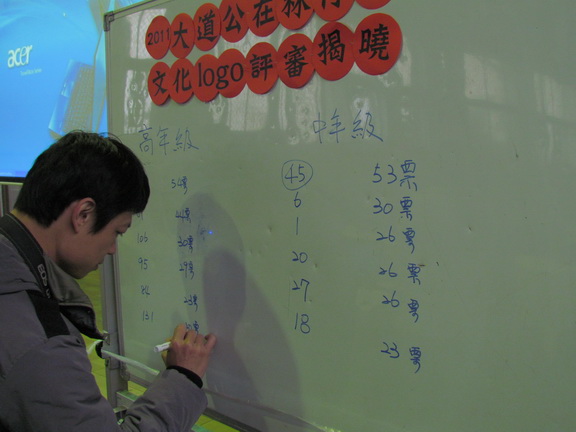 acer
2011大道公在
文化logo評審揭曉
高年級 中年級
54票 45 53票
44票 6 30票
106 30票 1 26票
95 29票 20 26票
27 26票
131 18 23票